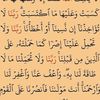 كَسَبَتْ وَعَلَيْهَا مَا ٱكْتَسَبَتْ رَبَّنَا لَا
تُؤَاخِذْنَا إِن نَّسِينَا أَوْ أَخْطَأْنَا رَبَّنَا وَلَا
تَحْمِلْ عَلَيْنَا إِصْرًا كَمَا حَمَلْتَهُ عَلَى
قَبْلِنَا رَبَّنَا وَلَا تُحَمِّلْنَا مَا لَا
لَنَا بِهِ وَٱعْفُ عَنَّا وَٱغْفِرْ لَنَا
أَنتَ مَوْلَىٰنَا فَٱنصُرْنَا عَلَى ٱلْقَوْمِ